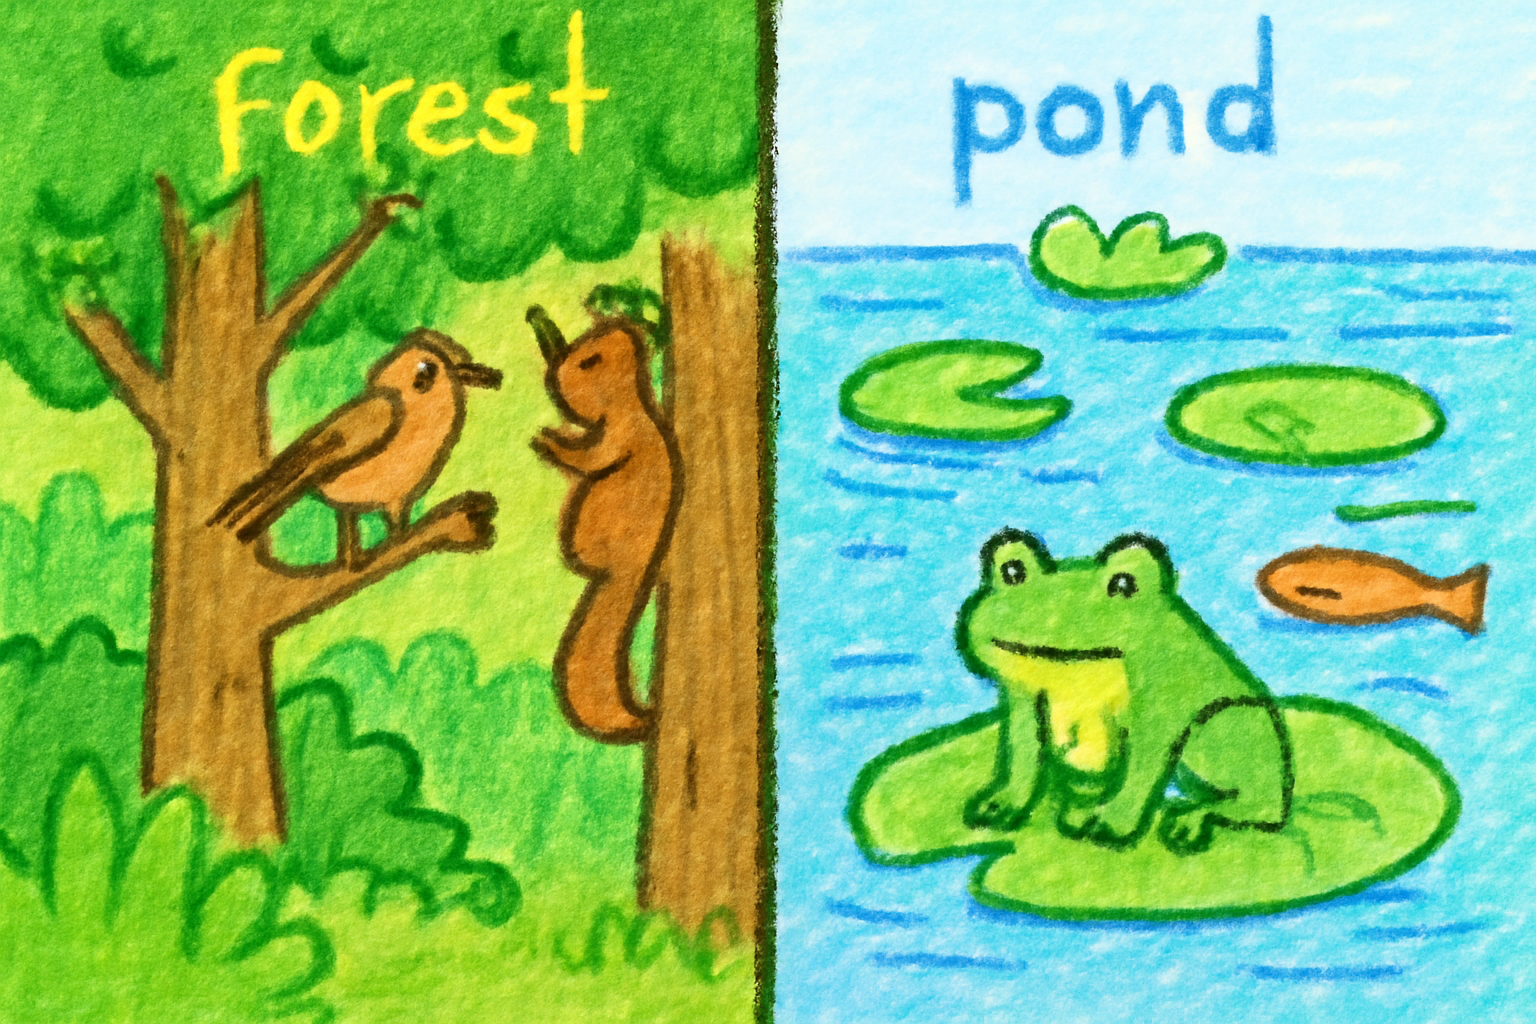 forest
pond